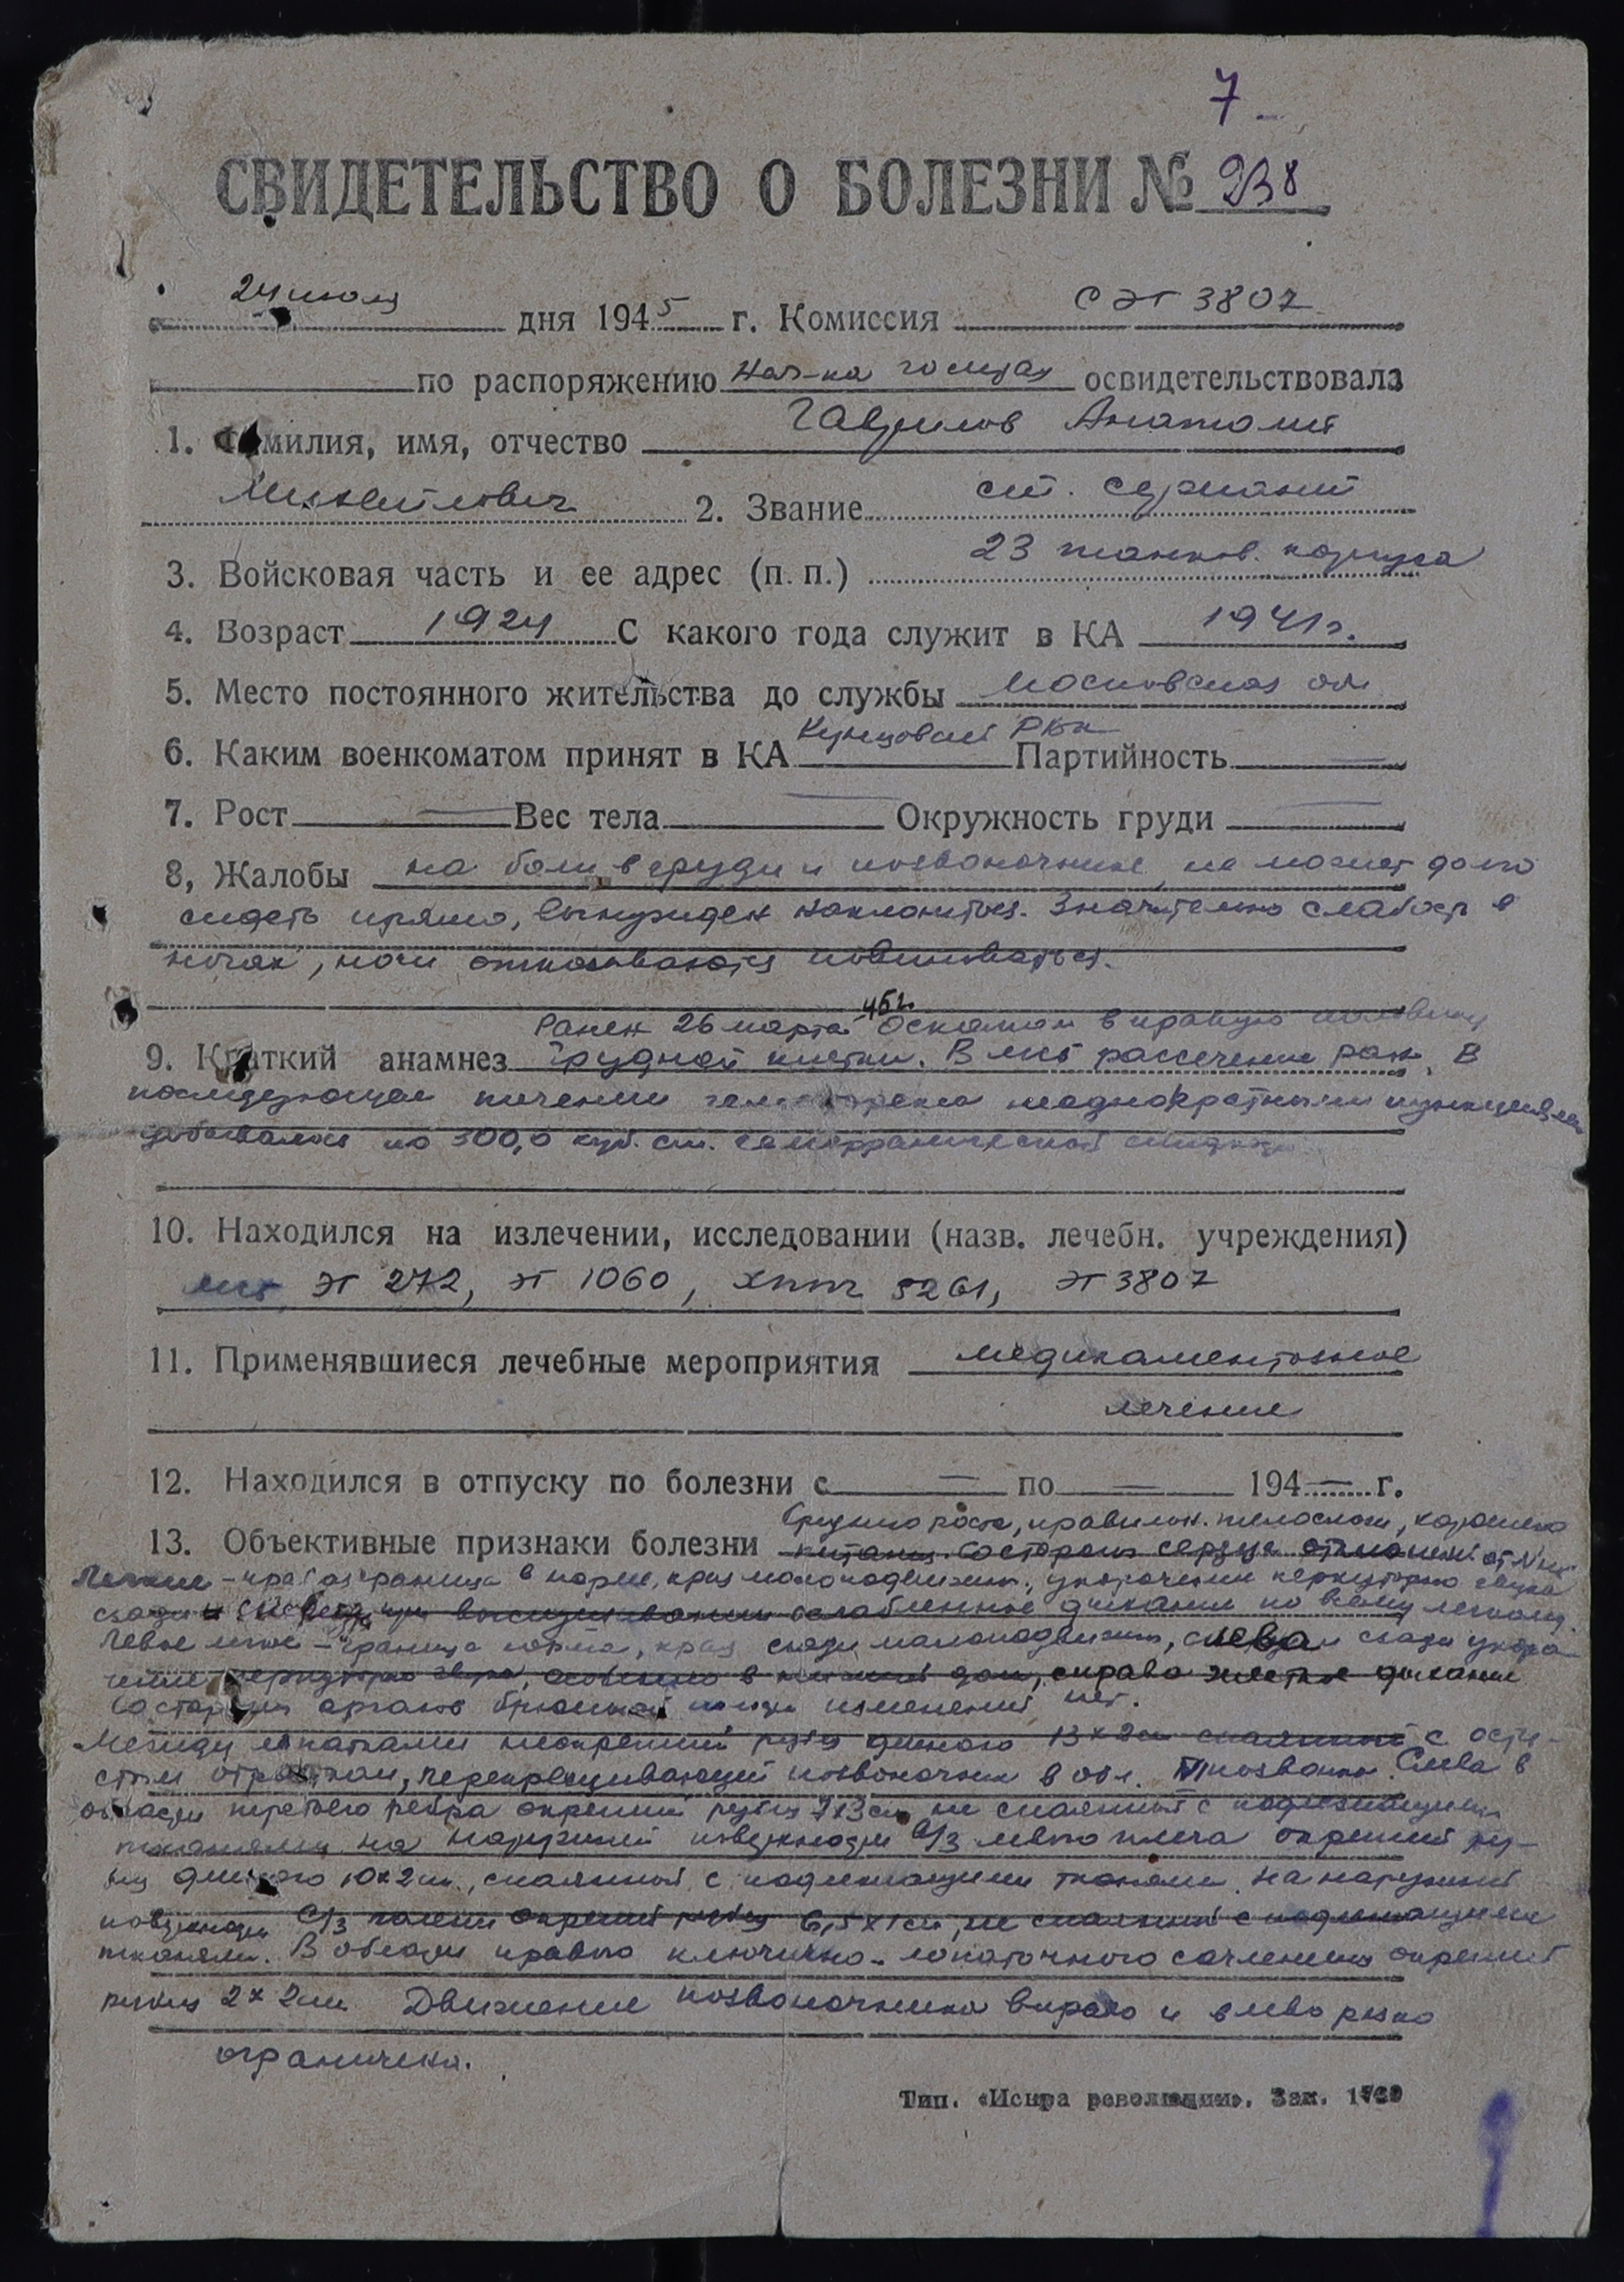 7
СВИДЕТЕЛЬСТВО О БОЛЕЗНИ № 938
24 июля дня 1945 г. Комиссия СЭГ 3807
по распоряжению нач-ка госпиталя освидетельствовала
1. Фамилия, имя, отчество Гаврилов Анатолий
Михайлович 2. Звание ст. сержант
3. Войсковая часть и ее адрес (п. п.) 23 танков. корпуса
4. Возраст 1924 С какого года служит в КА 1941 г.
5. Место постоянного жительства до службы Московская обл
6. Каким военкоматом принят в КА Кунцовский РВК Партийность —
7. Рост — Вес тела — Окружность груди —
8, Жалобы на боли в груди и позвоночнике, не может долго
сидеть прямо, вынужден наклониться. Значительно слабость в
ногах, ноги отказываются повиноваться.
Ранен 26 марта 45 г. Осколком в правую половину
9. Краткий анамнез грудной клетки. В мсб рассечение ран. В
последующем течении неоднократными пункциями
добывалось по 300,0 куб. см. геморрагической жидкости
10. Находился на излечении, исследовании (назв. лечебн. учреждения)
мсб, ЭГ 272, ЭГ 1060, хппг 5261, ЭГ 3807
11. Применявшиеся лечебные мероприятия медикаментозное
лечение
12. Находился в отпуску по болезни с — по — 194 — г.
Среднего роста, правильн. телослож, хорошего
13. Объективные признаки болезни питания. Со стороны сердца отклонений от N нет
Легкие – правое граница в норме, край малоподвижен, укорочение перкуторно звука
сзади и при выслушивании ослабленное дыхание по всему легкому.
Левое легкое – граница норма, край сзади малоподвижен, слева и сзади укоро-
чение перкуторно звука, особенно в нижней доли, справа жесткое дыхание
Со стороны органов брюшной полости изменений нет.
Между лопатками неокрепший рубец длиною 13×2 см спаянный с ости-
стым отростком, перекрещивающий позвоночник в обл. позвонка. Слева в
области третьего ребра окрепший рубец 7×3 см, не спаянный с подлежащими
тканями на наружной поверхности с/3 левого плеча окрепший ру-
бец длиною 10×2 см., спаянный с подлежащими тканями. На наружной
поверхности с/3 голени окрепший рубец 6,5×1 см, не спаянный с подлежащими
тканями. В области правого ключично-лопаточного сочленения окрепший
рубец 2×2 см. Движение позвоночника вправо и влево резко
ограничено.
Тип. «Искра революции». Зак.